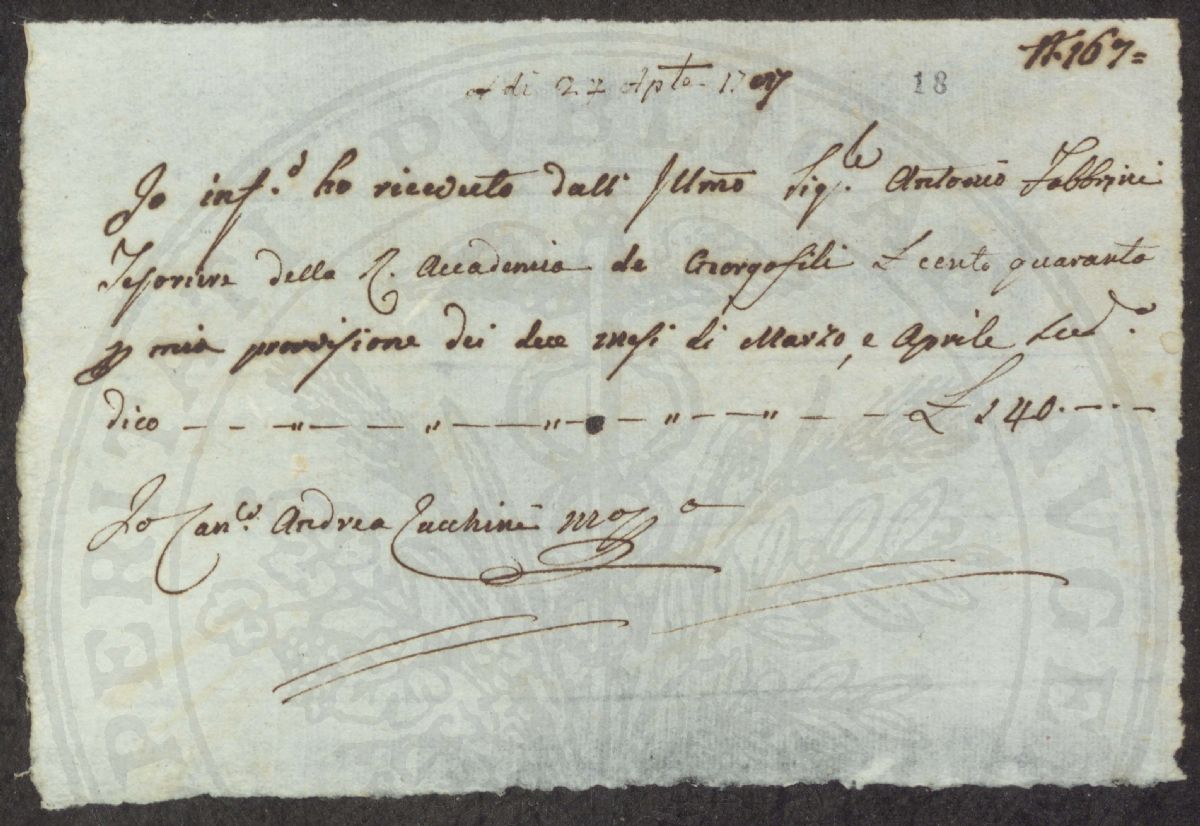 N. 167=
Adi 27 Aprile 17
18
Io inf.o ho ricevuto dall' Illmo Sig.le Antonio Fabbrini
Tesoriere della R. Accademia de Georgofili £ cento quaranta
p mia provvisione dei due mesi di Marzo, e Aprile
dico — — — " — " — — " — — " — — " — — £ 140.—.—
Io Can.co Andrea Zucchini mo pp.a
PERITATI PUBLICAE AUGE